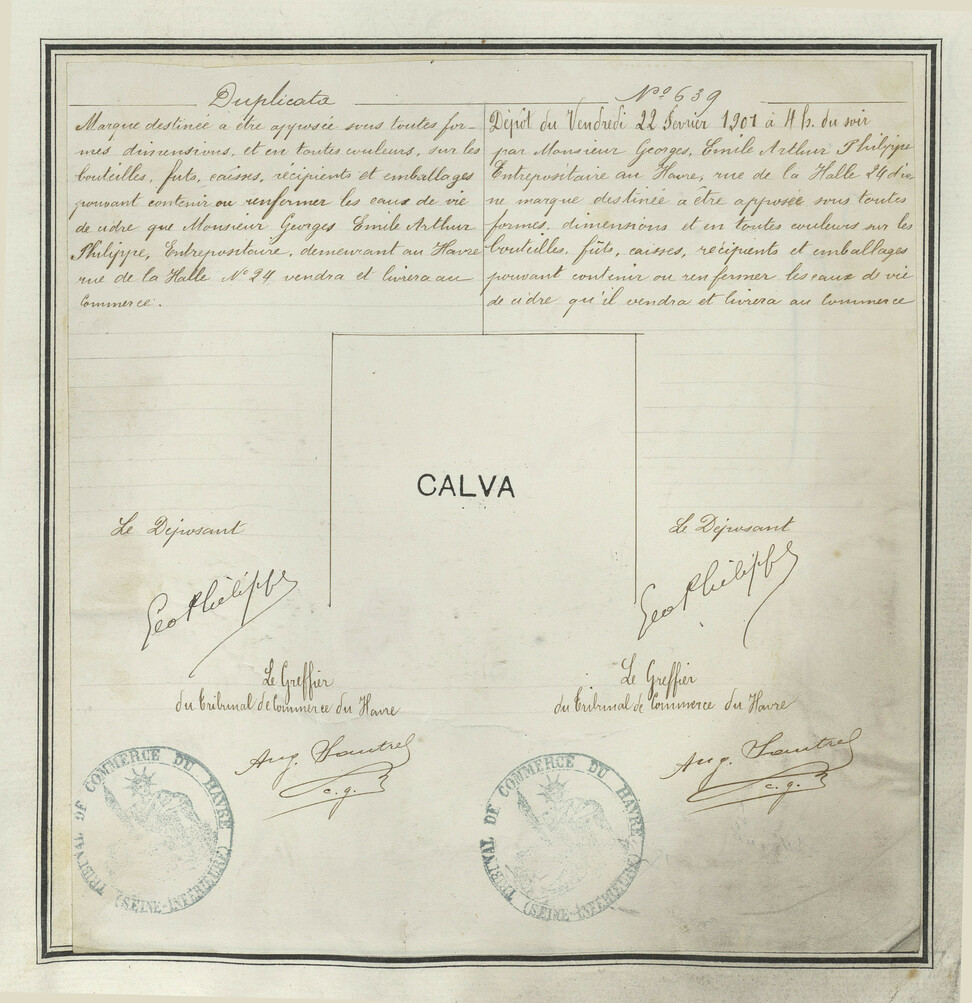 Duplicata
Marque destinée à être apposée sous toutes for-
mes dimensions, et en toutes couleurs, sur les
bouteilles, futs, caisses, récipients et emballages
pouvant contenir ou renfermer les eaux de vie
de cidre que Monsieur Georges Emile Arthur
Philippe, Entrepositaire, demeurant au Havre
rue de la Halle No 24 vendra et livrera au
Commerce.
No 639
Dépôt du Vendredi 22 Février 1901 à 4 h. du soir
par Monsieur Georges, Emile Arthur Philippe
Entrepositaire au Havre, rue de la Halle 24 d'u
ne marque destinée à être apposée sous toutes
formes, dimensions et en toutes couleurs sur les
bouteilles, fûts, caisses, récipients et emballages
pouvant contenir ou renfermer les eaux de vie
de cidre qu'il vendra et livrera au commerce
CALVA
Le Déposant
Geo Philippe
Le Greffier
du Tribunal de Commerce du Havre
Aug. Hautrel
c. g.
TRIBUNAL DE COMMERCE DU HAVRE
(SEINE-INFÉRIEURE)
Le Déposant
Geo Philippe
Le Greffier
du Tribunal de Commerce du Havre
Aug. Hautrel
c. g.
TRIBUNAL DE COMMERCE DU HAVRE
(SEINE-INFÉRIEURE)